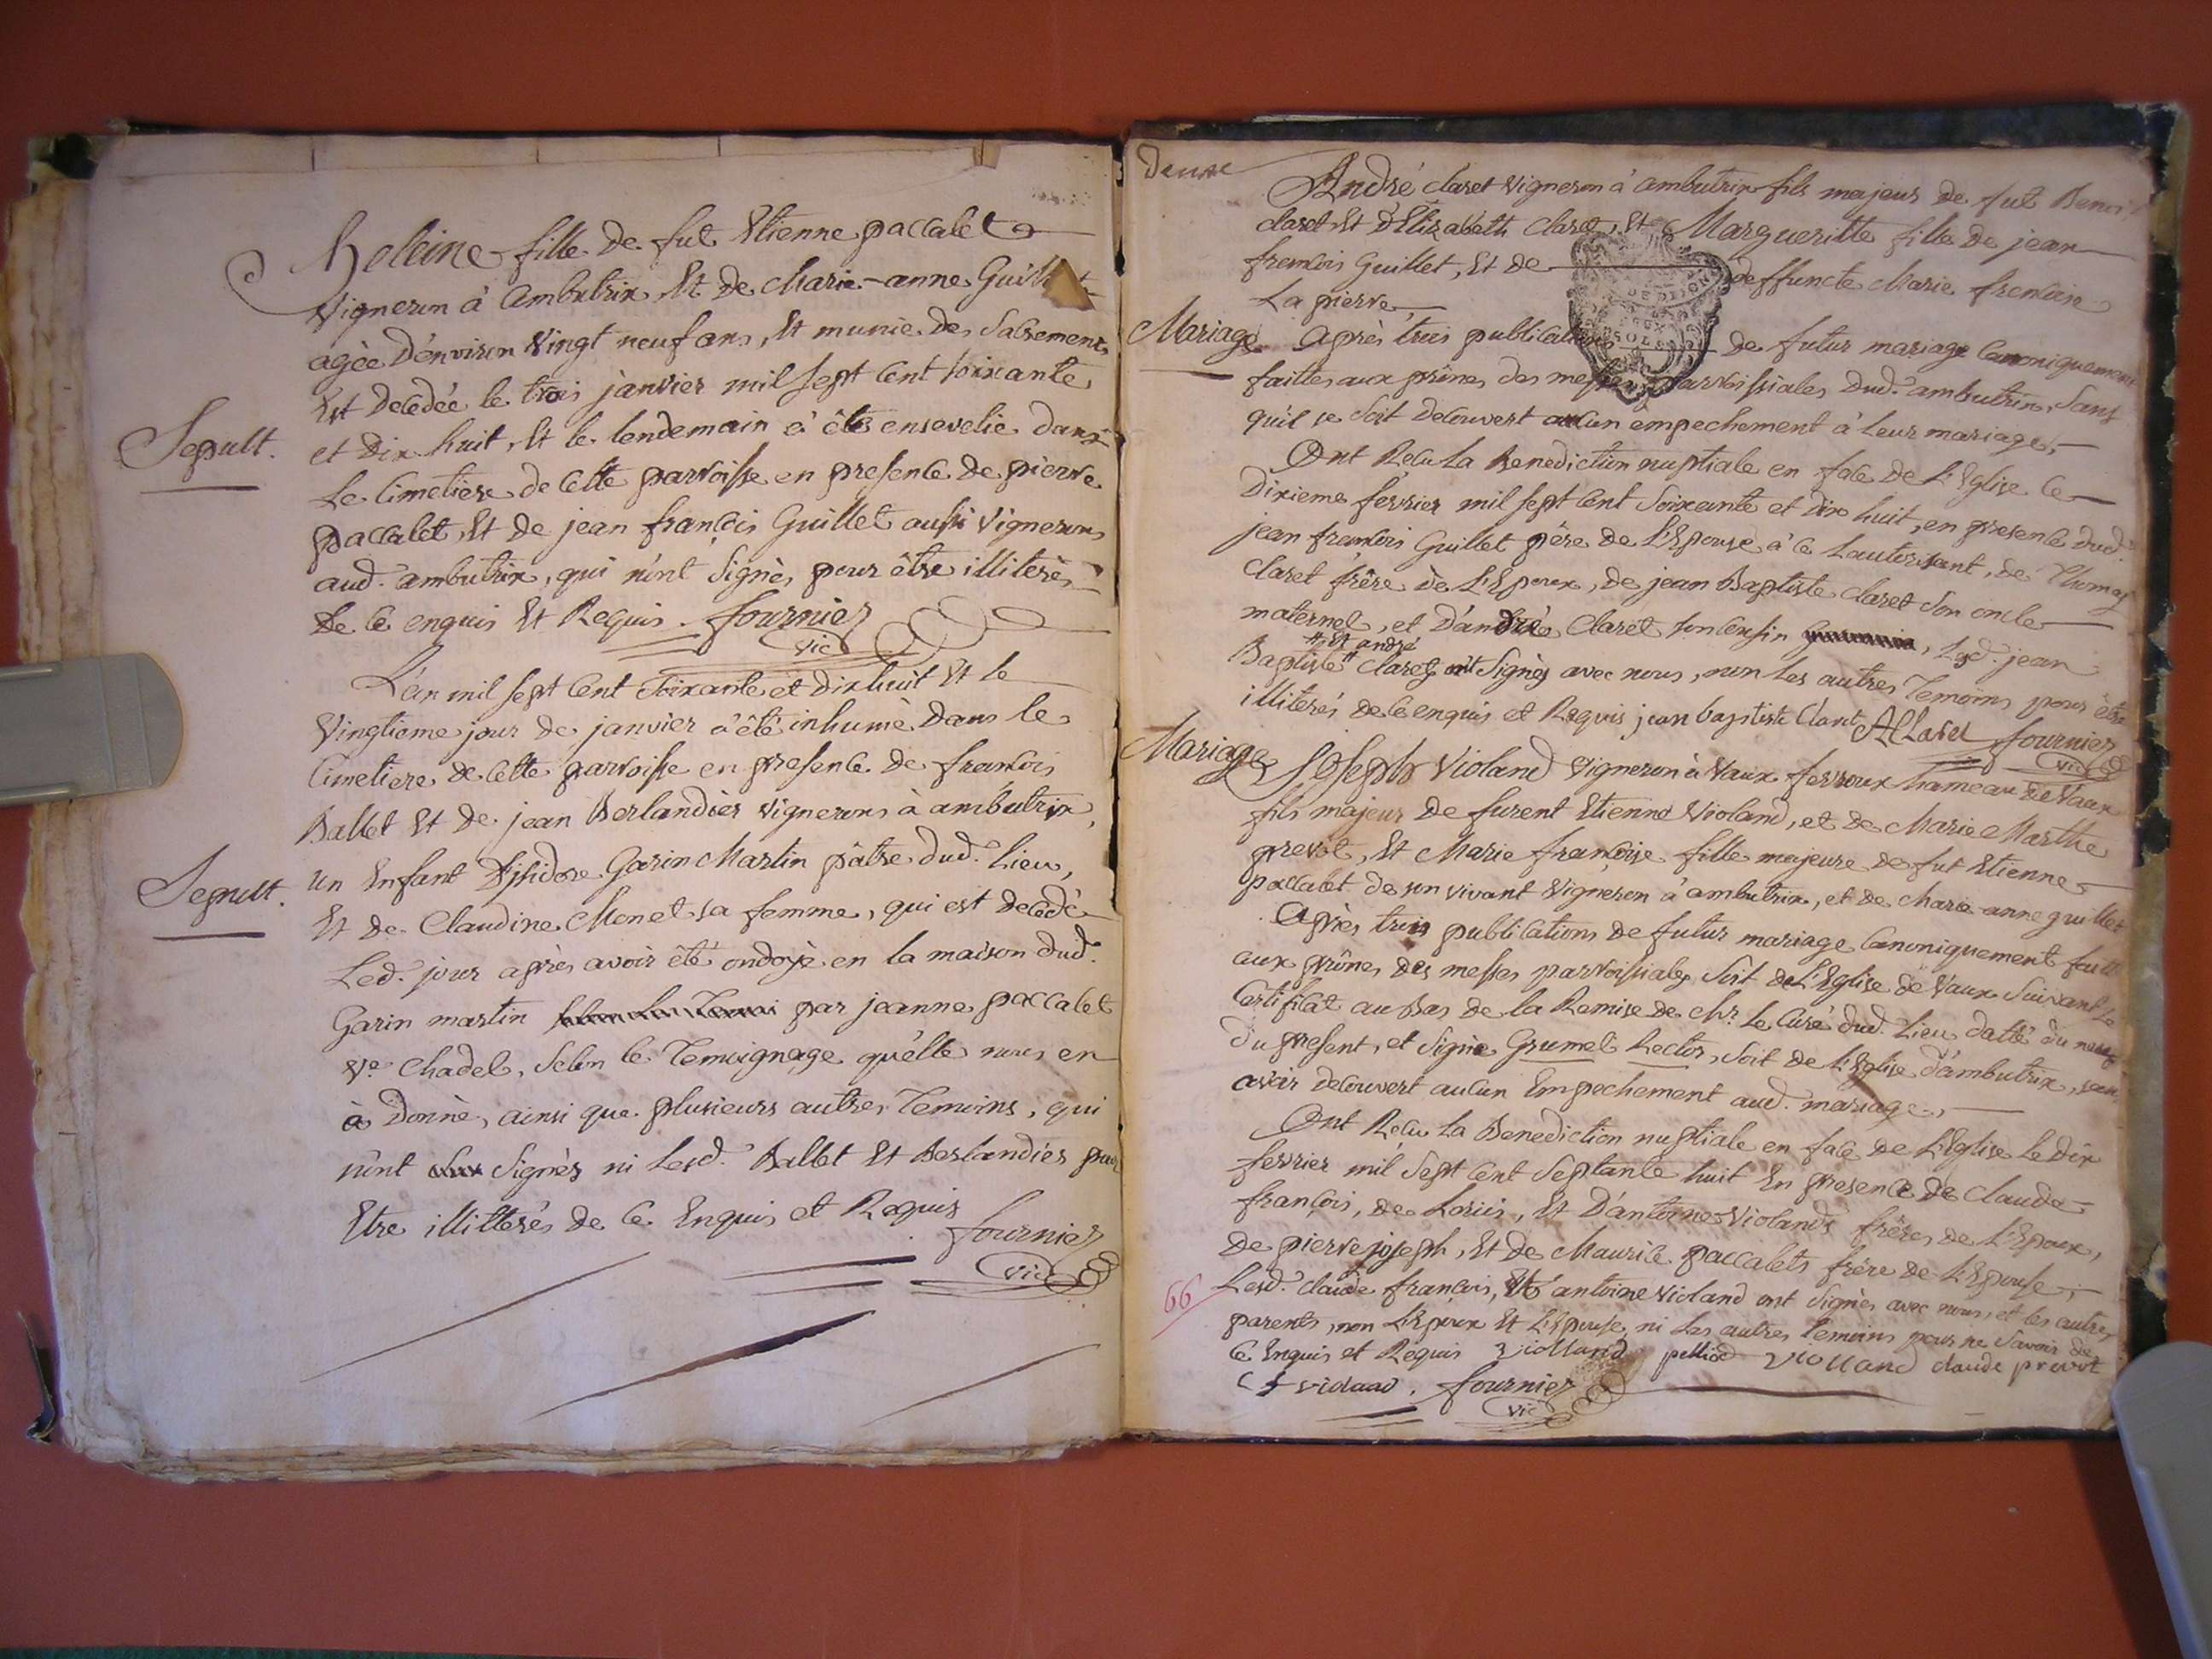 heleine fille de fut Etienne paccalet
Vigneron à Ambutrix Et de Marie-anne Guillet
agèe d'environ Vingt neuf ans, Et munie des Sacremens
Est decedée le trois janvier mil Sept Cent soixante
et Dix huit, Et le lendemain à été ensevelie dans
Sepult.
le Cimetiere de Cette parroisse en presence de pierre
paccalet, Et de jean françois Guillet aussi Vignerons
aud. ambutrix, qui n'ont Signès pour être illiterès
de ce enquis Et Requis. fournier
vic
L'an mil Sept Cent Soixante et Dix huit Et le
Vingtieme jour de janvier à été inhumè Dans le
Cimetiere de Cette parroisse en presence de francois
Ballet Et de jean Berlandier Vignerons à ambutrix,
Un Enfant D'isidore Garin Martin pâtre dud. Lieu,
Sepult.
Et de Claudine Monet sa femme, qui est decedé
Led. jour après avoir été ondoyè en la maison dud.
Garin martin par jeanne paccalet
Ve Chadel, Selon le Temoignage qu'elle nous en
à Donnè, ainsi que plusieurs autres Temoins, qui
n'ont Signès ni Lesd. Ballet Et Berlandier pour
Etre illitterés de Ce Enquis et Requis
fournier
vic
Deuxe
André Claret Vigneron à ambutrix fils majeur de fut Benoi
Claret Et D'Elizabeth Claret, Et Margueritte fille de jean
francois Guillet, Et de deffuncte Marie francoise
La pierre
Mariage
Après trois publications de futur mariage Canoniquement
faittes aux prônes des messes parroissiales Dud. ambutrix, Sans
qu'il se Soit Decouvert aucun empechement à Leur mariage,
Ont Recu La Benediction nuptiale en face de L'Eglise le
Dixieme fevrier mil Sept Cent Soixante et Dix huit, en presence Dud.
jean francois Guillet père de L'Epouse à ce Lautorisant, de Thomas
Claret frère de L'Epoux, de jean Baptiste Claret Son oncle
maternel, et D'andrè Claret son Cousin, Lesd. jean
# Et andrè
Baptiste # Claret ont Signès avec nous, non Les autres Temoins pour être
illiterés de Ce enquis et Requis jean baptiste Claret AClaret fournier
vic
Mariage
Joseph Violand Vigneron à Vaux fevroux hameau de Vaux
fils majeur de furent Etienne Violand, et de Marie Marthe
prevot, Et Marie francoise fille majeure de fut Etienne
paccalet de son vivant Vigneron à ambutrix, et de Marie anne guillet
Après trois publications de futur mariage Canoniquement fait
aux prônes des messes parroissiales Soit de L'Eglise de Vaux Suivant Le
Certificat au Bas de la Remise de Mr. Le Curé dud. Lieu datté du neuf
du present, et Signé Grumet Rector, Soit de L'Eglise d'ambutrix, sans
avoir decouvert aucun Empechement aud. mariage,
Ont Recu La Benediction nuptiale en face de L'Eglise Le Dix
fevrier mil Sept Cent Septante huit En presence de Claude
françois, de Loüis, Et D'antoine Violands frères de L'Epoux,
de pierre joseph, Et de Maurice paccalets frère de L'Epouse;
66
Lesd. Claude francois, Et antoine Violand ont Signès avec nous, et les autres
parents, non L'Epoux Et L'Epouse, ni Les autres temoins pour ne Savoir de
Ce Enquis et Requis Violland pelliod Violland Claude prevot
C f violand. fournier
vic